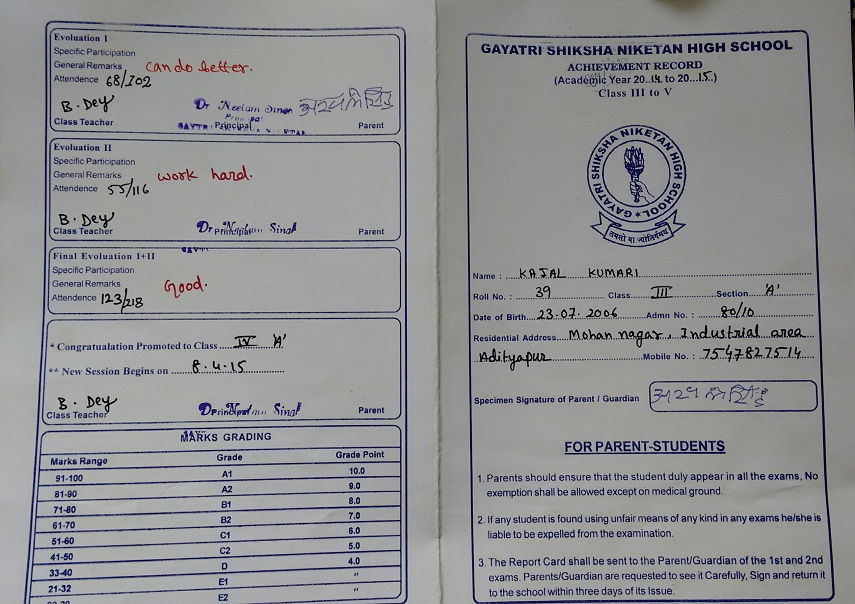 Evaluation I
Specific Participation
General Remarks can do better.
Attendence 68/102
B. Dey
Dr Neelam Singh
Class Teacher Principal Parent
Evaluation II
Specific Participation
General Remarks work hard.
Attendence 55/116
B. Dey
Class Teacher Principal Parent
Final Evaluation I+II
Specific Participation
General Remarks Good.
Attendence 123/218
* Congratualation Promoted to Class IV 'A'
** New Session Begins on 8.4.15
B. Dey
Class Teacher Principal Parent
MARKS GRADING
Marks Range Grade Grade Point
91-100 A1 10.0
81-90 A2 9.0
71-80 B1 8.0
61-70 B2 7.0
51-60 C1 6.0
41-50 C2 5.0
33-40 D 4.0
21-32 E1 "
E2 "
GAYATRI SHIKSHA NIKETAN HIGH SCHOOL
ACHIEVEMENT RECORD
(Academic Year 20..14. to 20...15..)
Class III to V
GAYATRI SHIKSHA NIKETAN HIGH SCHOOL
तमसो मा ज्योतिर्गमय
Name : KAJAL KUMARI
Roll No. : 39 Class III Section 'A'
Date of Birth 23.07.2006 Admn No. : 80/10
Residential Address Mohan nagar, Industrial area
Adityapur Mobile No. : 7547827514
Specimen Signature of Parent / Guardian
FOR PARENT-STUDENTS
1. Parents should ensure that the student duly appear in all the exams, No
exemption shall be allowed except on medical ground.
2. If any student is found using unfair means of any kind in any exams he/she is
liable to be expelled from the examination.
3. The Report Card shall be sent to the Parent/Guardian of the 1st and 2nd
exams. Parents/Guardian are requested to see it Carefully, Sign and return it
to the school within three days of its Issue.